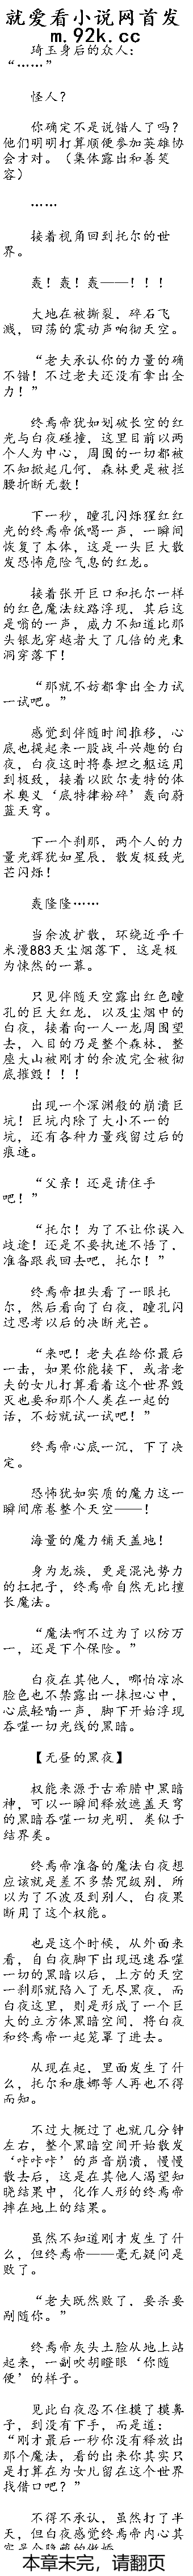 就爱看小说网首发
m.92k.cc
琦玉身后的众人：
“……”
怪人？
你确定不是说错人了吗？
他们明明打算顺便参加英雄协
会才对。（集体露出和善笑
容）
……
接着视角回到托尔的世
界。
轰！轰！轰——！！！
大地在被撕裂，碎石飞
溅，回荡的震动声响彻天空。
“老夫承认你的力量的确
不错！不过老夫还没有拿出全
力！”
终焉帝犹如划破长空的红
光与白夜碰撞，这里目前以两
个人为中心，周围的一切都被
不知掀起几何，森林更是被拦
腰折断无数！
下一秒，瞳孔闪烁猩红红
光的终焉帝低喝一声，一瞬间
恢复了本体，这是一头巨大散
发恐怖危险气息的红龙。
接着张开巨口和托尔一样
的红色魔法纹路浮现，其后这
是嗡的一声，威力不知道比那
头银龙穿越者大了几倍的光束
洞穿落下！
“那就不妨都拿出全力试
一试吧。”
感觉到伴随时间推移，心
底也提起来一股战斗兴趣的白
夜，白夜这时将泰坦之躯运用
到极致，接着以欧尔麦特的体
术奥义‘底特律粉碎’轰向蔚
蓝天穹。
下一个刹那，两个人的力
量光辉犹如星辰，散发极致光
芒闪烁！
轰隆隆……
当余波扩散，环绕近乎千
米漫883天尘烟落下，这是极
为悚然的一幕。
只见伴随天空露出红色瞳
孔的巨大红龙，以及尘烟中的
白夜，接着向一人一龙周围望
去，入目的乃是整个森林，整
座大山被刚才的余波完全被彻
底摧毁！！！
出现一个深渊般的崩溃巨
坑！巨坑内除了大小不一的
坑，还有各种力量残留过后的
痕迹。
“父亲！还是请住手
吧！”
“托尔！为了不让你误入
歧途！还是不要执迷不悟了，
准备跟我回去吧，托尔！”
终焉帝扭头看了一眼托
尔，然后看向了白夜，瞳孔闪
过思考以后的决断光芒。
“来吧！老夫在给你最后
一击，如果你能接下，或者老
夫的女儿打算看着这个世界毁
灭也要和那个人类在一起的
话，不妨就试一试吧！”
终焉帝心底一沉，下了决
定。
恐怖犹如实质的魔力这一
瞬间席卷整个天空——！
海量的魔力铺天盖地！
身为龙族，更是混沌势力
的扛把子，终焉帝自然无比擅
长魔法。
“魔法啊不过为了以防万
一，还是下个保险。”
白夜在其他人，哪怕凉冰
脸色也不禁露出一抹担心中，
心底轻喃一声，脚下开始浮现
吞噬一切光线的黑暗。
【无昼的黑夜】
权能来源于古希腊中黑暗
神，可以一瞬间释放遮盖天穹
的黑暗吞噬一切光明，类似于
结界类。
终焉帝准备的魔法白夜想
应该就是差不多禁咒级别，所
以为了不波及到别人，白夜果
断用了这个权能。
也是这个时候，从外面来
看，自白夜脚下出现迅速吞噬
一切的黑暗以后，上方的天空
一刹那就陷入了无尽黑夜，而
白夜这里，则是形成了一个巨
大的立方体黑暗空间，将白夜
和终焉帝一起笼罩了进去。
从现在起，里面发生了什
么，托尔和康娜等人再也不得
而知。
不过大概过了也就几分钟
左右，整个黑暗空间开始散发
‘咔咔咔’的声音崩溃，慢慢
散去后，这是在其他人渴望知
晓结果中，化作人形的终焉帝
摔在地上的结果。
虽然不知道刚才发生了什
么，但终焉帝——毫无疑问是
败了。
“老夫既然败了，要杀要
剐随你。”
终焉帝灰头土脸从地上站
起来，一副吹胡瞪眼‘你随
便’的样子。
见此白夜忍不住摸了摸鼻
子，到没有下手，而是道：
“刚才最后一秒你没有释放出
那个魔法，看的出来你其实只
是打算在为女儿留在这个世界
找借口吧？”
不得不承认，虽然打了半
天，但白夜感觉终焉帝内心其
本章未完，请翻页